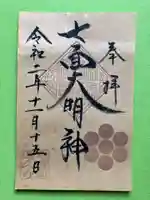 奉拝
七面大明神
令和二年十一月十五日